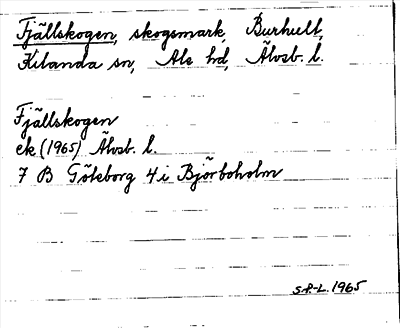 Fjällskogen, skogsmark, Burhult,
Kilanda sn, Ale hd, Älvsb. l.
Fjällskogen
ek (1965) Älvsb. l.
7 B Göteborg 4 i Björboholm
S.P.-L. 1965